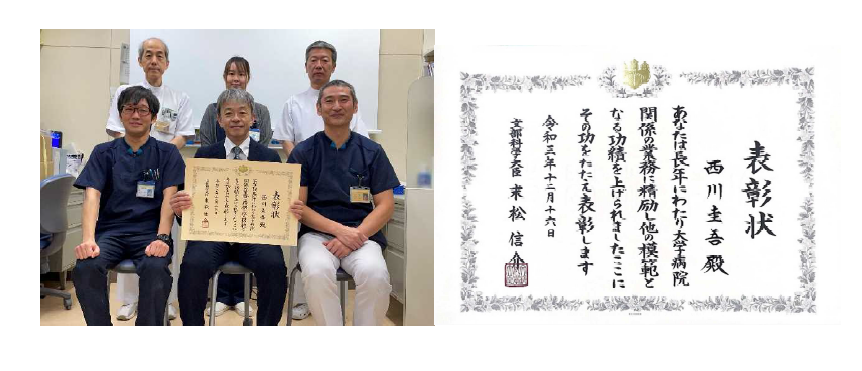 表彰状
西川圭吾殿
あなたは長年にわたり大学病院
関係の業務に精励し他の模範と
なる功績を上げられましたここに
その功をたたえ表彰します
令和三年十二月十六日
文部科学大臣 末松信介
表彰状
西川圭吾殿